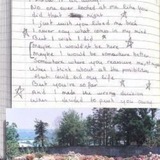 No one ever looked at me like you
did that night
I just wish you asked me back
I never say what comes in my mind
But I wish I did
Maybe I wouldn't be here
Maybe I would be somewhere better
Somewhere where you
When I think about all the possibilities
that could
But you're so far
I made the wrong decision
when I decided to